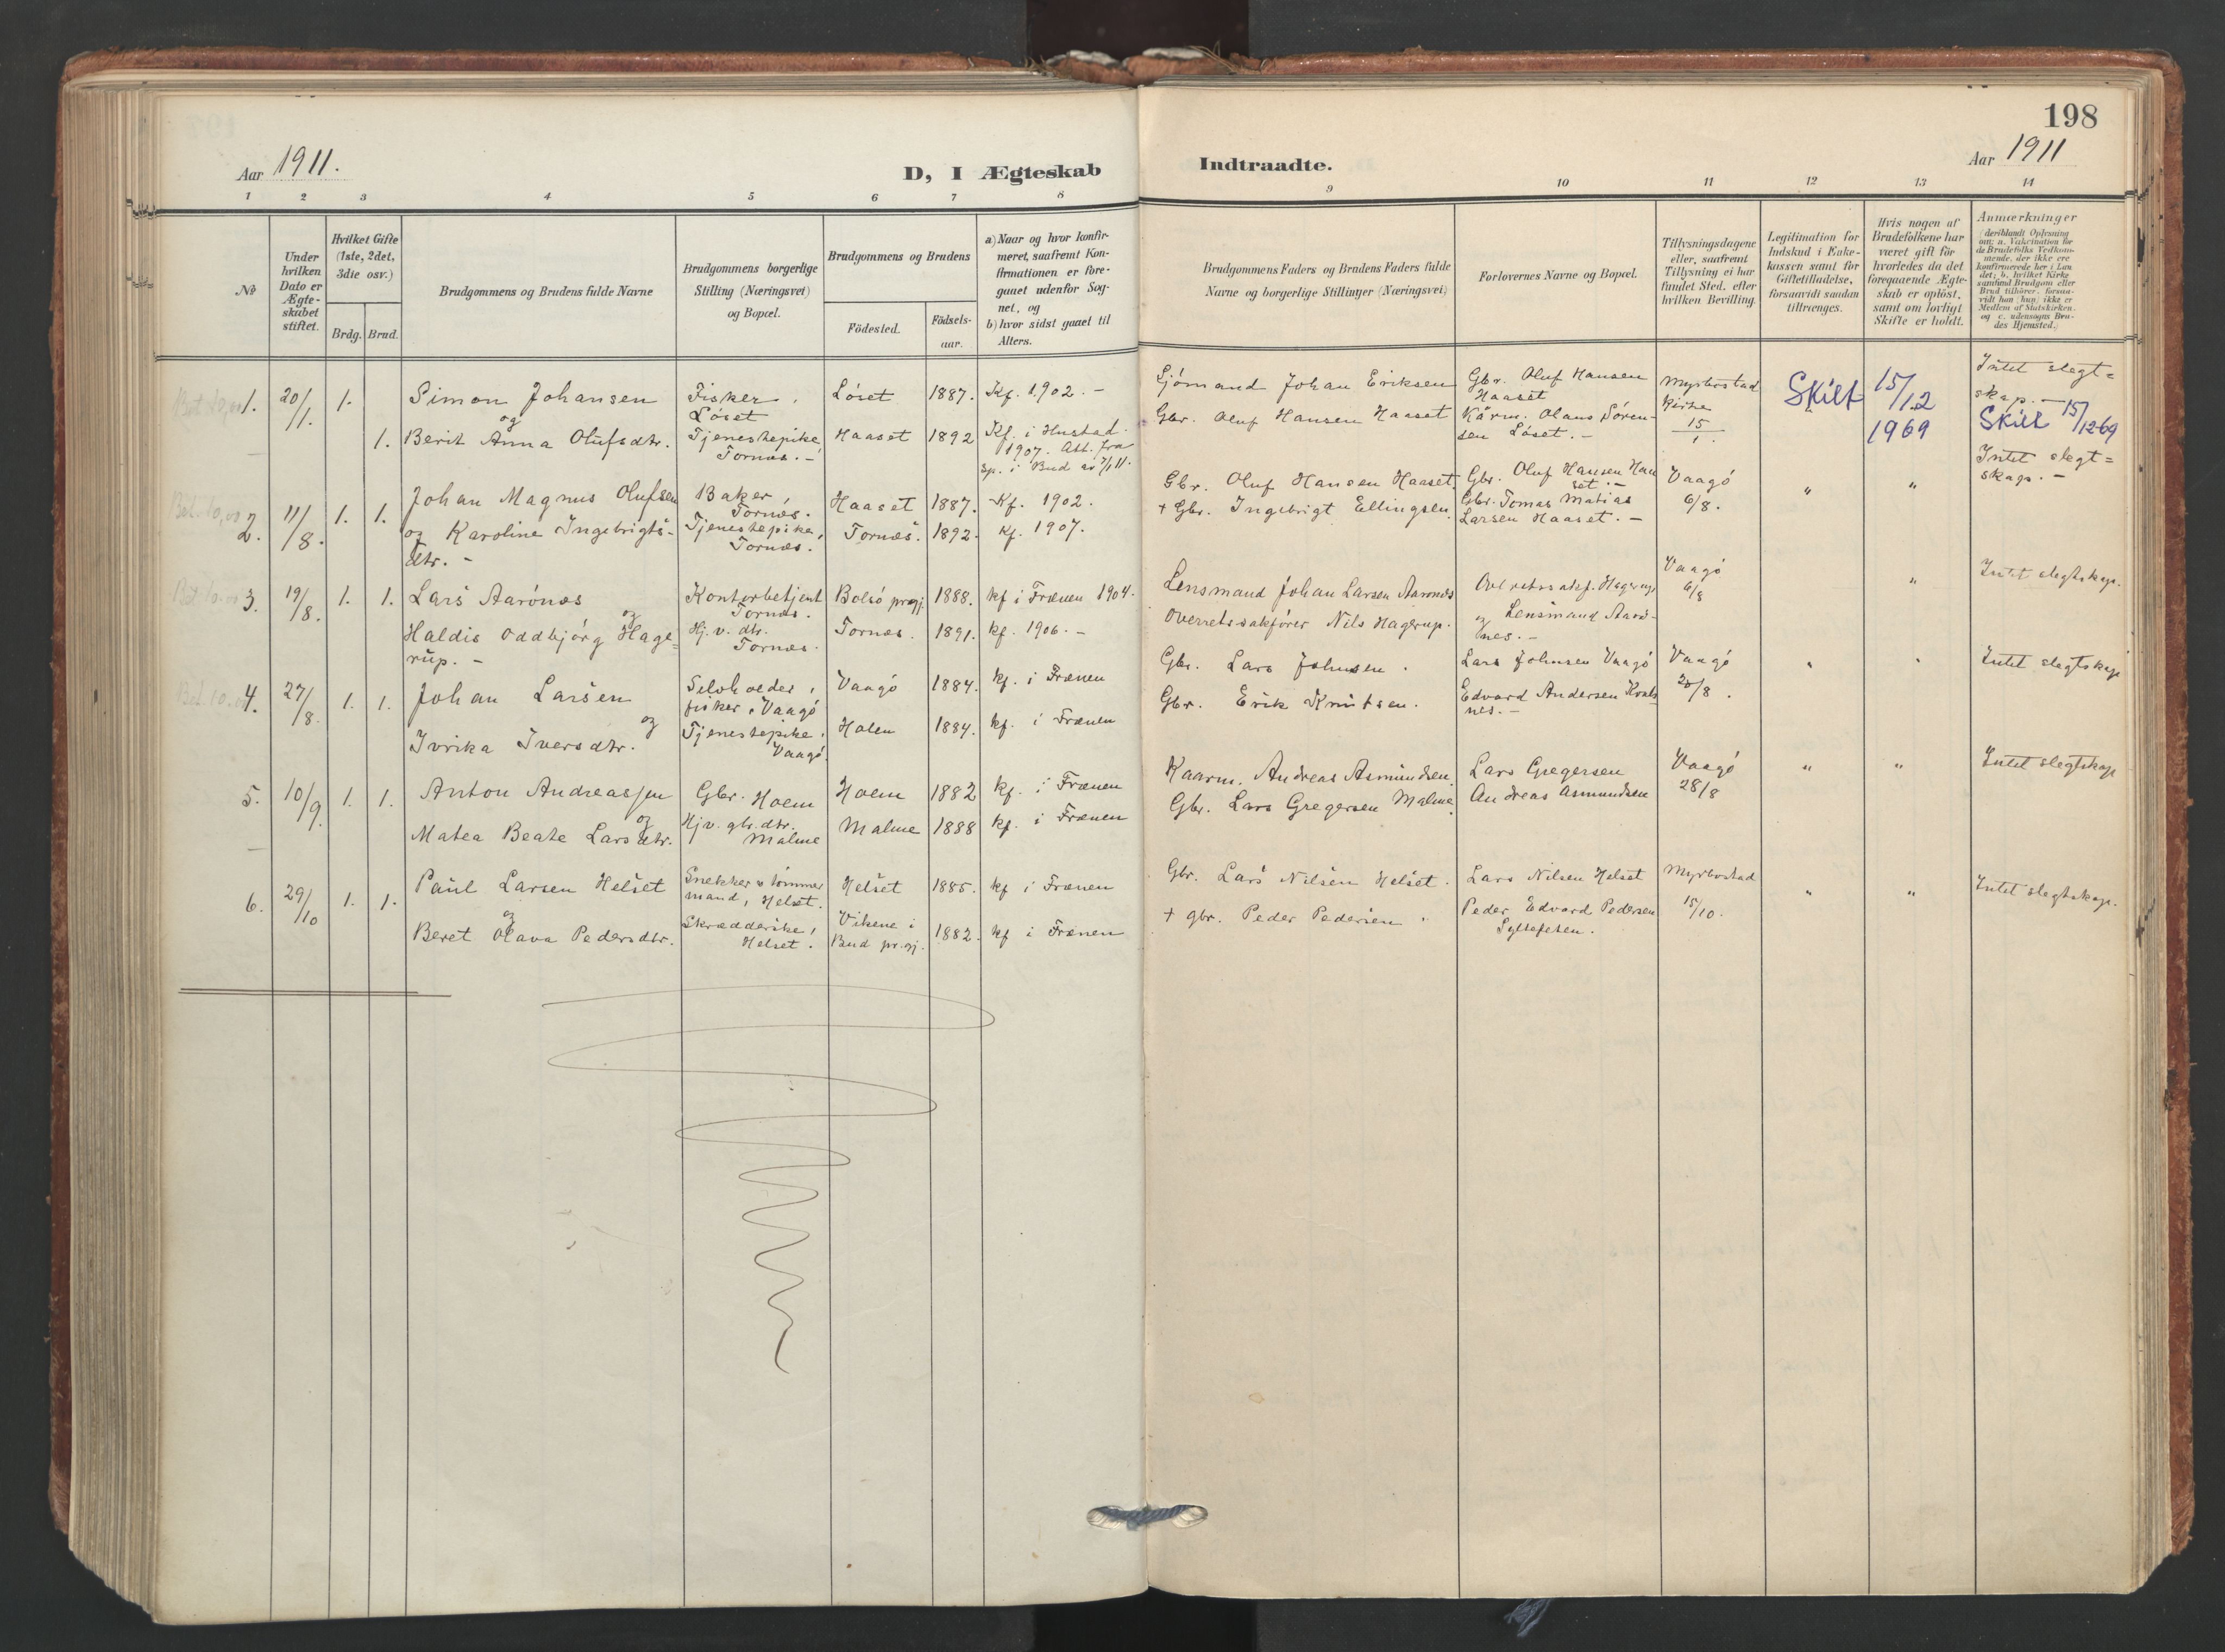 198
Aar 1911.
D, I Ægteskab
Indtraadte.
Aar 1911
1 2 3 4 5 6 7 8
9 10 11 12 13 14
No
Under hvilken Dato er Ægte-skabet stiftet.
Hvilket Gifte (1ste, 2det, 3die osv.)
Brdg. Brud.
Brudgommens og Brudens fulde Navne
Brudgommens borgerlige Stilling (Næringsvei) og Bopæl.
Brudgommens og Brudens
Födested.
Födsels-aar.
a) Naar og hvor konfir-meret, saafremt Kon-firmationen er fore-gaaet udenfor Sog-net, og
b) hvor sidst gaaet til Alters.
Brudgommens Faders og Brudens Faders fulde Navne og borgerlige Stillinger (Næringsvei)
Forlovernes Navne og Bopæl.
Tillysningsdagene eller, saafremt Tillysning ei har fundet Sted, efter hvilken Bevilling.
Legitimation for Indskud i Enke-kassen samt for Giftetilladelse, forsaavidt saadan tiltrænges.
Hvis nogen af Brudefolkene har været gift för hvorledes da det foregaaende Ægte-skab er oplöst, samt om lovligt Skifte er holdt.
Anmærkninger
(deriblandt Oplysning om: a. Vakcination for de Brudefolks Vedkom-mende, der ikke ere konfirmerede her i Lan det; b. hvilket Kirke samfund Brudgom eller Brud tilhörer, forsaa-vidt han (hun) ikke er Medlem af Statskirken. og c. udensogns Bru-des Hjemsted.)
1. 20/1. 1. Simon Johansen Fisker, Löset Löset 1887. Kf. 1902. -
og
1. Berit Anna Olufsdtr. Tjenestepike Tornæs. - Haaset 1892 Kf. i Hustad 1907. Att. fra sp. i Bud av 7/1 11.
Sjömand Johan Eriksen Gbr. Oluf Hansen Haaset Myrbostad Kirke 15/1. Skilt 15/12 1969 Intet slegt=skap. -
Gbr. Oluf Hansen Haaset Kårm. Olaus Sören-sen Löset. - Skilt 15/12-69
2. 11/8. 1. 1. Johan Magnus Olufsen Baker, Tornæs. Haaset 1887. Kf. 1902.
og Karoline Ingebrigts-dtr. - Tjenestepike, Tornæs. Tornæs. 1892. Kf. 1907.
Gbr. Oluf Hansen Haaset. Gbr. Oluf Hansen Haaset. - Vaagö 6/8. " " Intet slegt=skap. -
+ Gbr. Ingebrigt Ellingsen. Gbr. Tomas Matias Larsen Haaset. -
3. 19/8. 1. 1. Lars Aarönæs Kontorbetjent Tornæs. Bolsö prgj. 1888. kf i Frænen 1904.
og
Haldis Oddbjörg Hage=rup. - Hj. v. dtr. Tornæs. Tornæs. 1891. kf. 1906. -
Lensmand Johan Larsen Aarönæs Overretssakf. Hagerup Vaagö 6/8 " Intet slegtskap.
Overretssakförer Nils Hagerup. og Lensmand Aarö-nes. -
4. 27/8. 1. 1. Johan Larsen Selvhoeder, fisker, Vaagö Vaagö 1884. kf. i Frænen
og
Ivrika Iversdtr. Tjenestepike, Vaagö. Holen 1884. kf. i Frænen
Gbr. Lars Johnsen. Lars Johnsen Vaagö Vaagö 20/8. " " Intet slegtskap
Gbr. Erik Knutsen. Edvard Andersen
5. 10/9. 1. 1. Anton Andreassen Gbr. Hoem Hoem 1882 kf. i Frænen
og
Matea Beate Larsdtr. Hj v. gbr. dtr. Malme Malme 1888 kf. i Frænen
Kaarm. Andreas Asmundsen Lars Gregersen Vaagö 28/8 " " Intet slegtskap
Gbr. Lars Gregersen Malme. Andreas Asmundsen
6. 29/10 1. 1. Paul Larsen Helset Snekker & tömmermand, Helset. Helset 1885. kf i Frænen
og
Beret Olava Pedersdtr. Skrædderske, Helset. Vikene i Bud pr.gj. 1882. kf i Frænen
Gbr. Lars Nilsen Helset. Lars Nilsen Helset Myrbostad 15/10. " " Intet slegtskap.
+ gbr. Peder Pedersen. Peder Edvard Pedersen